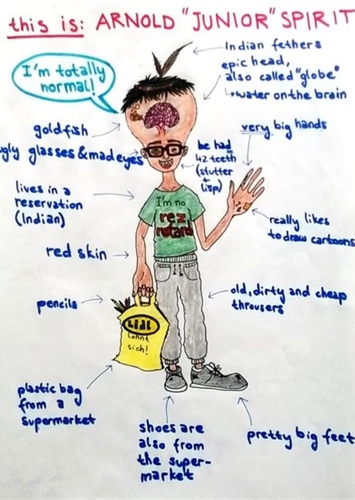 this is: ARNOLD "JUNIOR" SPIRIT
I'm totally
normal!
Indian fethers
epic head,
also called "globe"
↳water on the brain
goldfish
ugly glasses & mad eyes
he had
42 teeth
(stutter
+
lisp)
very big hands
lives in a
reservation
(Indian)
I'm no
(rez
retard)
really likes
to draw cartoons
red skin
pencils
old, dirty and cheap
throusers
LIDL
Lohnt
sich!
plastic bag
from a
supermarket
shoes are
also from
the super-
market
pretty big feet